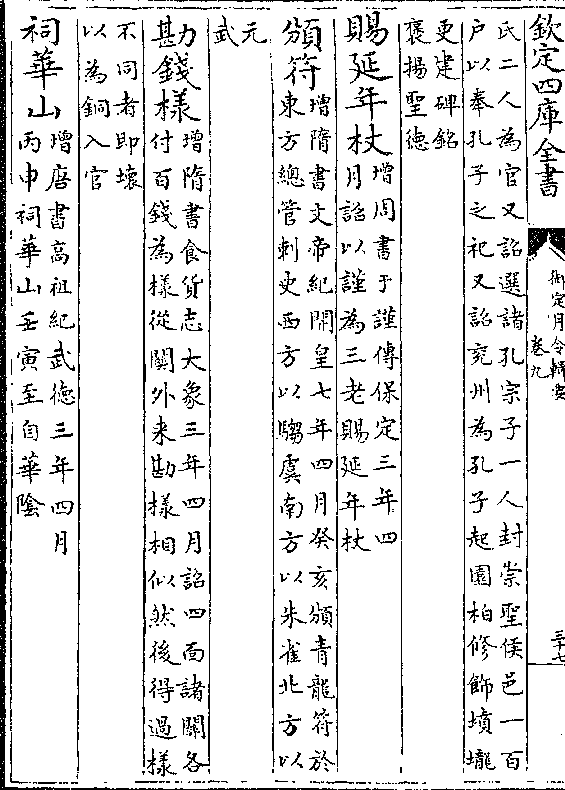 欽定四庫全書
御定月令輯要
卷九
三十七
氏二人為官又詔選諸孔宗子一人封崇聖侯邑一百
户以奉孔子之祀又詔兖州為孔子起園柏修飾墳壠
更建碑銘
褒揚聖德
賜延年杖
增周書于謹傳保定三年四
月詔以謹為三老賜延年杖
頒符
增隋書文帝紀開皇七年四月癸亥頒青龍符於
東方總管刺史西方以騶虞南方以朱雀北方以
元
武
勘錢樣
增隋書食貨志大象三年四月詔四面諸關各
付百錢為樣從關外來勘樣相似然後得過樣
不同者即壞
以為銅入官
祠華山
增唐書高祖紀武德三年四月
丙申祠華山壬寅至自華陰